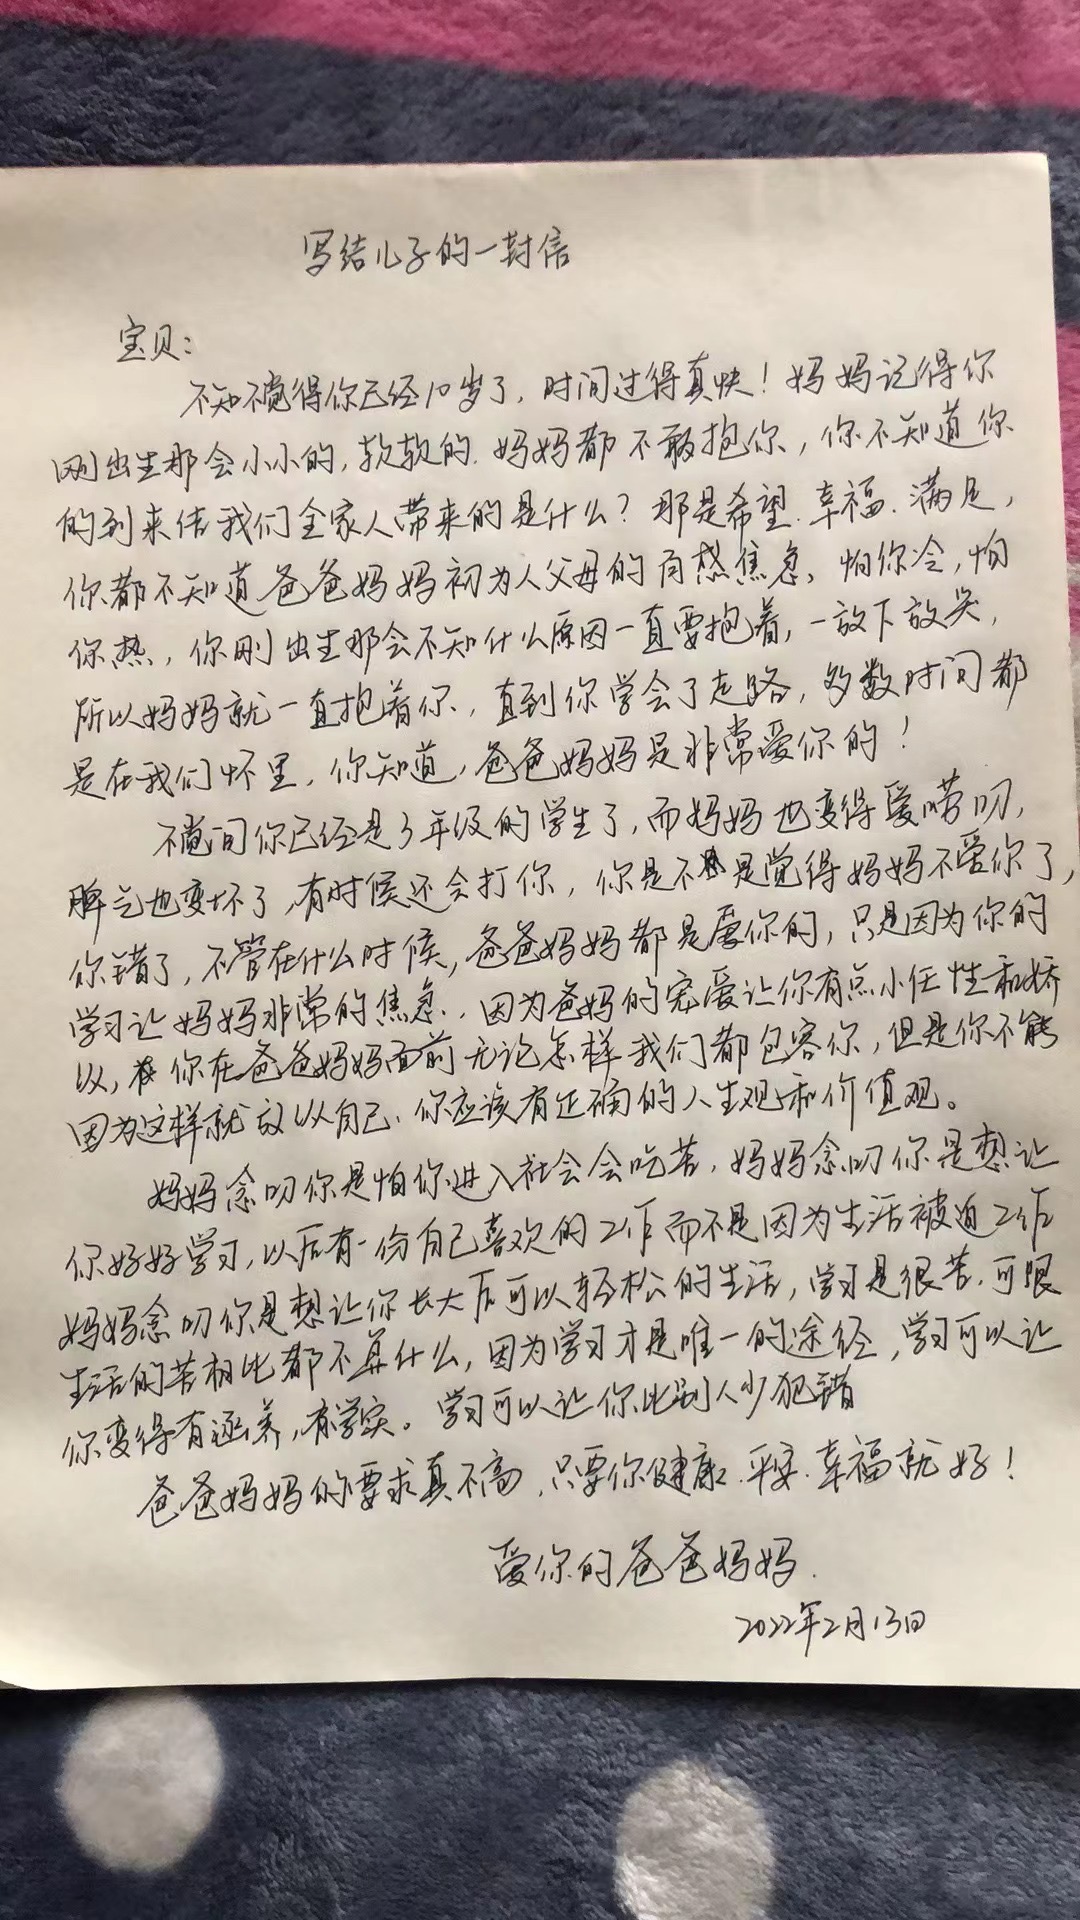 写给儿子的一封信
宝贝：
不知不觉得你已经10岁了，时间过得真快！妈妈记得你
刚出生那会小小的，软软的、妈妈都不敢抱你，你不知道你
的到来给我们全家人带来的是什么？那是希望、幸福、满足，
你都不知道爸爸妈妈初为人父母的焦急、怕你冷，怕
你热，你刚出生那会不知什么原因一直要抱着，一放下放哭，
所以妈妈就一直抱着你，直到你学会了走路，多数时间都
是在我们怀里，你知道，爸爸妈妈是非常爱你的！
不觉间你已经是3年级的学生了，而妈妈也变得爱唠叨，
脾气也变坏了，有时候还会打你，你是不是觉得妈妈不爱你了，
你错了，不管在什么时候，爸爸妈妈都是爱你的，只是因为你的
学习让妈妈非常的焦急，因为爸妈的宠爱让你有点小任性和娇
以，你在爸爸妈妈面前无论怎样我们都包容你，但是你不能
因为这样就放以自己、你应该有正确的人生观和价值观。
妈妈念叨你是怕你进入社会会吃苦，妈妈念叨你是想让
你好好学习，以后有一份自己喜欢的工作而不是因为生活被迫工作
妈妈念叨你是想让你长大后可以轻松的生活，学习是很苦，可跟
生活的苦相比都不算什么，因为学习才是唯一的途经，学习可以让
你变得有涵养，有学实。学习可以让你比别人少犯错
爸爸妈妈的要求真不高，只要你健康、平安、幸福就好！
爱你的爸爸妈妈.
2022年2月13日